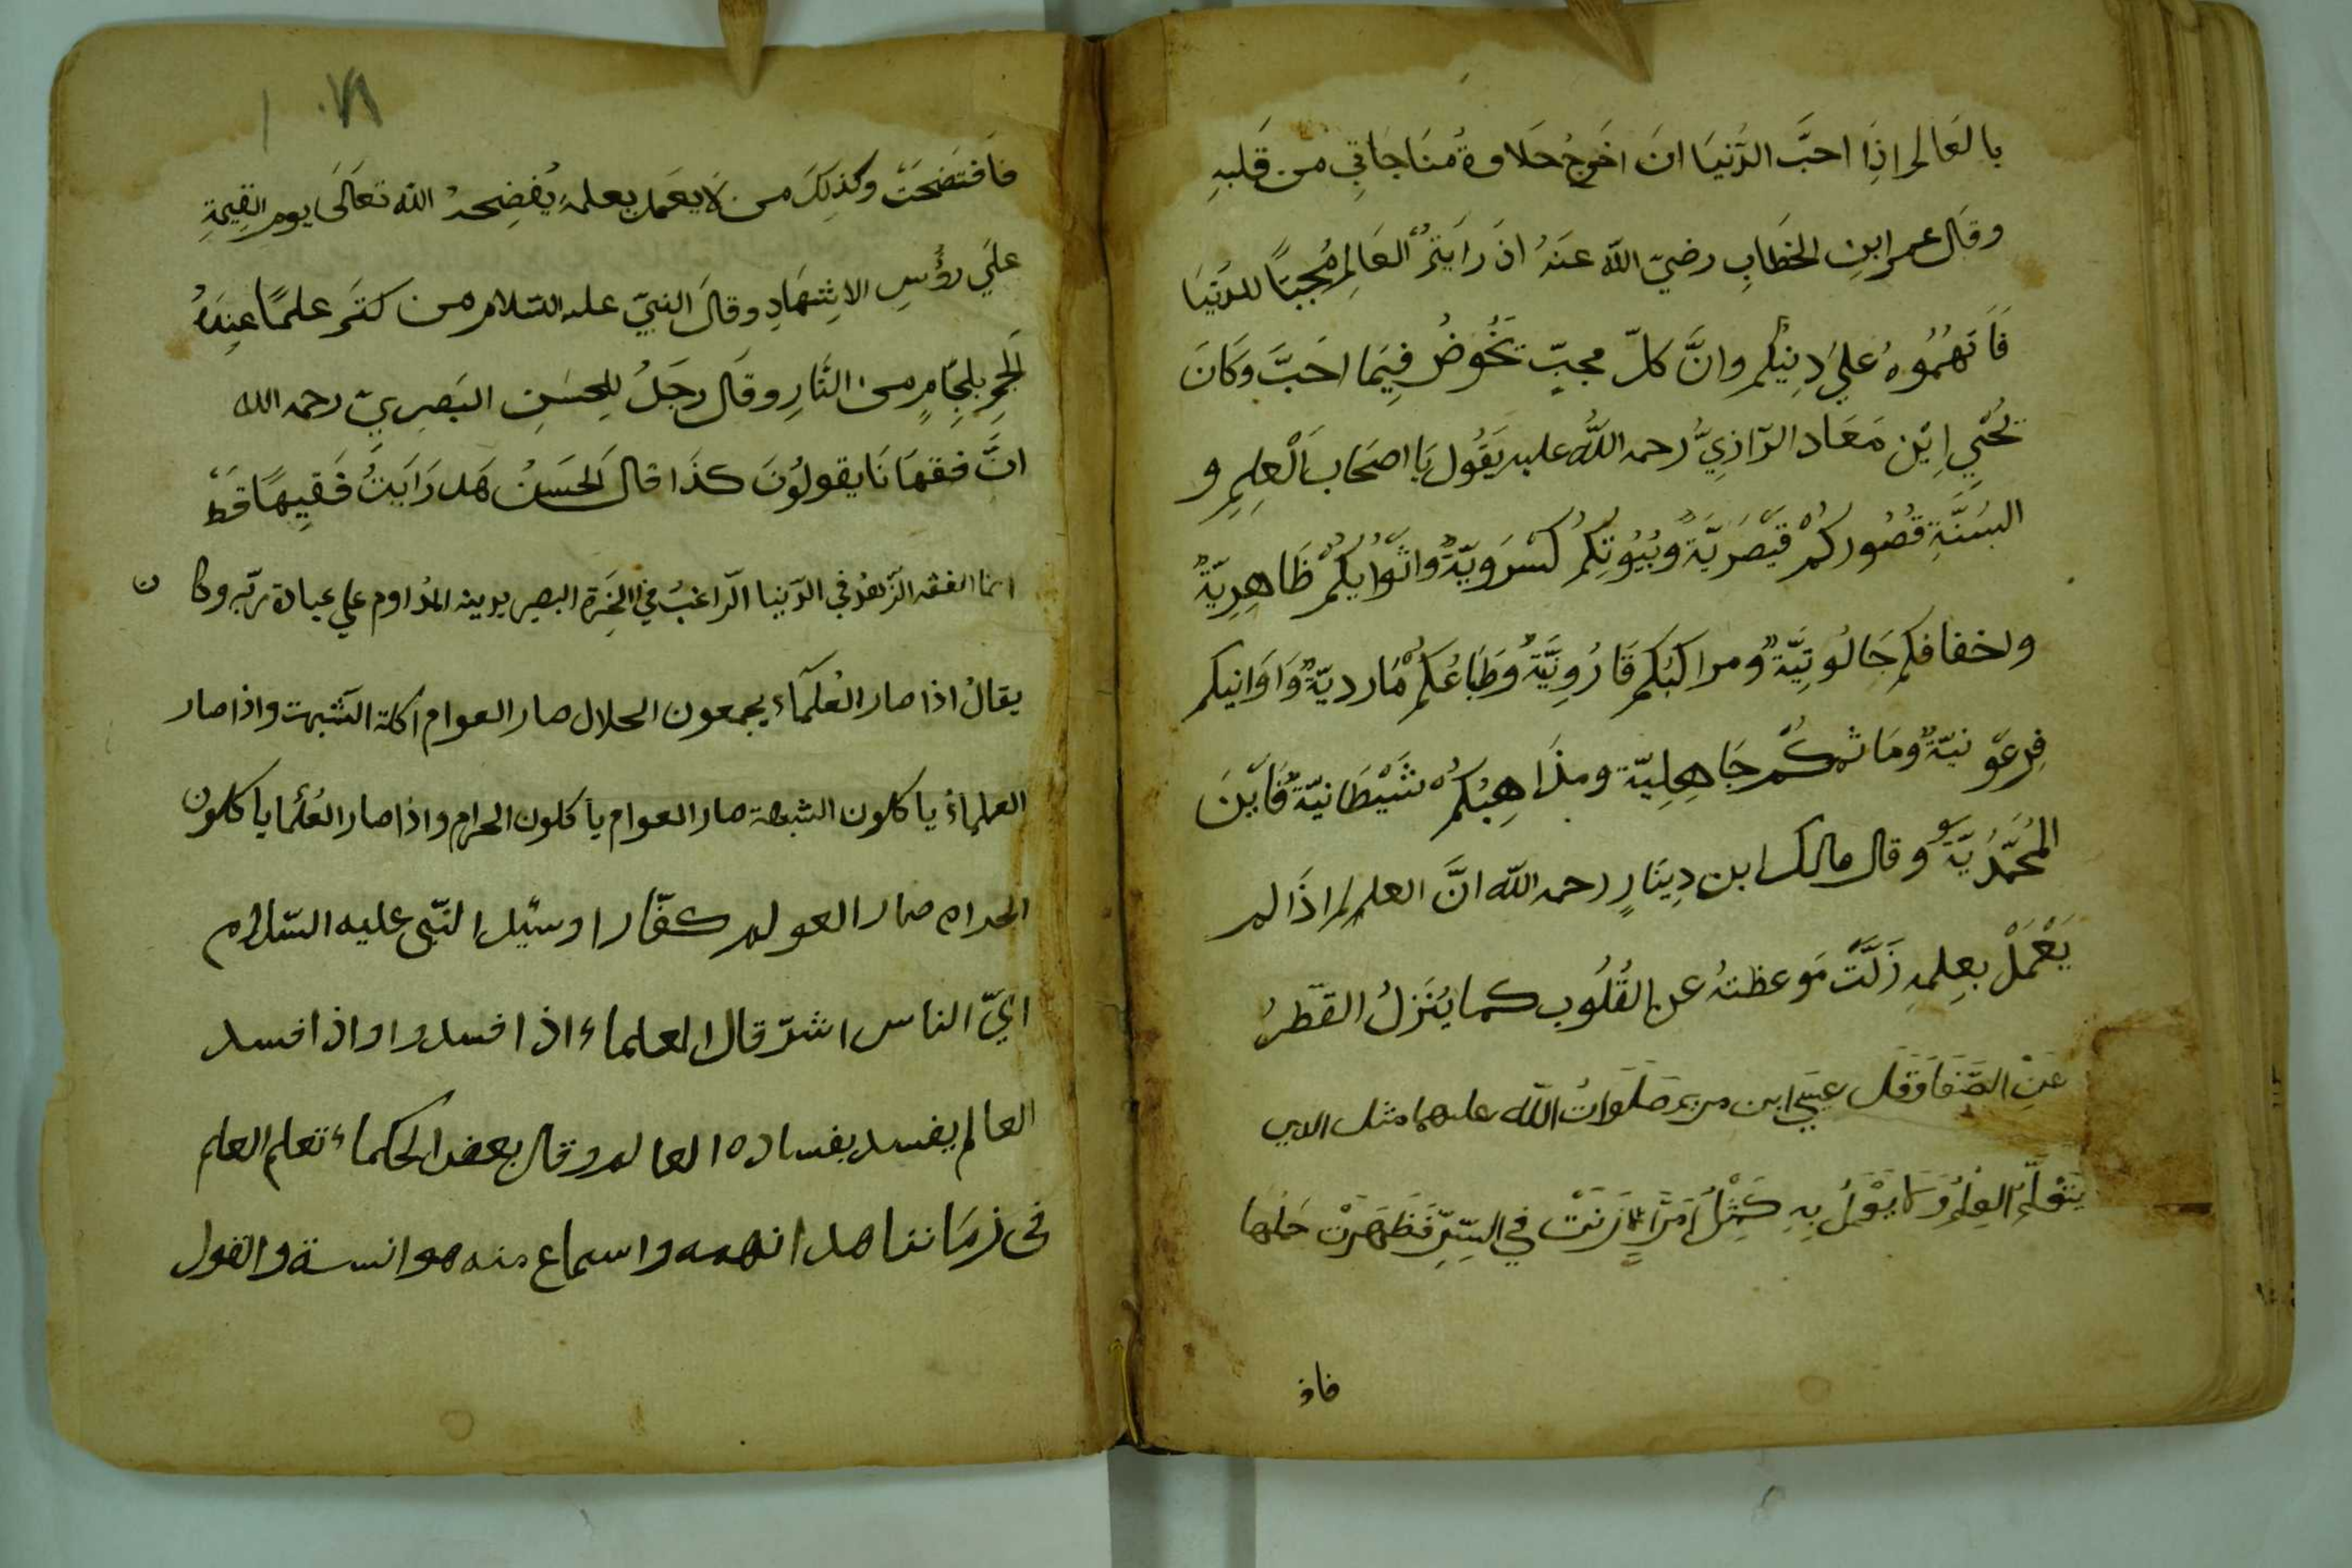 بالعَالم اِذَا احبَّ الدُّنيَا ان اَخرجُ حَلاوة مُنَاجَاتِي من قَلبهِ
وقَال عمر ابنِ الخطَابِ رضيّ اللّه عَنهُ اذَ رَايَتُم العَالِم مُحِبَّاً للدّنيَا
فَاَتهمُوهُ عَليَ دِينِكم وانَّ كلّ محبٍّ يَخُوضُ فِيمَا اَحَبَّ وَكَانَ
يَحْيي اِبْن مَعَاد الرّازِيّ رحمه اللّه عليه يَقُول يَا اصحَاب العِلِمِ و
السُنَّةِ قُصُوركُمْ قَيْصَرِيَّةٌ وبُيُوتِكمُ كُسْرَوِيّةٌ واثْوابُكُمْ ظَاهِرِيَّةٌ
واخفافكم جَالُوتِيَّةٌ ومراكبُكم قَارُونِيَّةٌ وطَبَاعُكُم مُارديّةٌ وَاوَانيكم
فِرعَونيّةٌ ومَاثمكُم جَاهِلِيّة ومذَاهِبُكُم شَيْطَانيّةٌ فَاَيْنَ
المُحَمَّدُيَّةُ وقال مالك ابن دِينَارٍ رحمه اللّه انَّ العلم اِذَا لم
يَعْمَلْ بعِلمهِ زَلَّتْ مَوعظتهُ عن القُلُوب كما يُنَزلُ القَطرُ
عَنِ الصَّفَا وَقَل عيسَي ابن مريم صَلَوَاتُ اللّه عليهما مثل الدي
يَتَعْلَّم العِلمُ وَلَا يَعْمَلُ بِهِ كَمِثْلُ اَمَرَاةٍ زَنَتْ في السِّرِّ فَظَهَرَتْ حَملها
فاف
٠٧٩
فَافتَضحَتْ وكذِلِكَ من لَا يعَمل بعلمهِ يُفضِحهُ اللّه تعَالَى يوم القِيمَةِ
علَي رؤُسِ الاشِهَادِ وقالَ النبيّ عليه السّلام من كتَم علمًا عِندَهُ
اَلجِم بلِجَامٍ من النَّارِ وقَال رجَلُ لِلحسَنِ البَصِريّ رحمه الله
انَّ فقهَانَا يقولوُنَ كذَا قال الحَسَنُ هَل رَايَتَ فَقِيهًا قَط
انما الفقه الزّهدُ في الدّنيا الرّاغبُ في الاخِرة البصير بدينه المدُاوم علي عبادة ربّه وكا ن
يقالُ اذا صار العُلَمآء يجمعون الحلال صار العوام اكلة الشبهت واذا صار
العلمآءُ ياكلون الشبهة صار العوام ياكلون الحرام واذا صار العُلَما ياكلون
الحرام صار العولم كفّارا وسئل النّبى عليه السّلام
ايّ الناس اشرّ قال العلماء اذا فسدوا واذا فسد
العالم يفسد بفساده العالم وقال بعض الحكماء تعلم العلم
فى زمَاننا هذا تهمه واسماع منه موانسة والقول